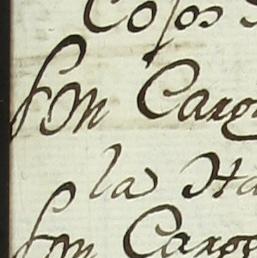 Cosos
Son Carg
la Ha
Son Carg